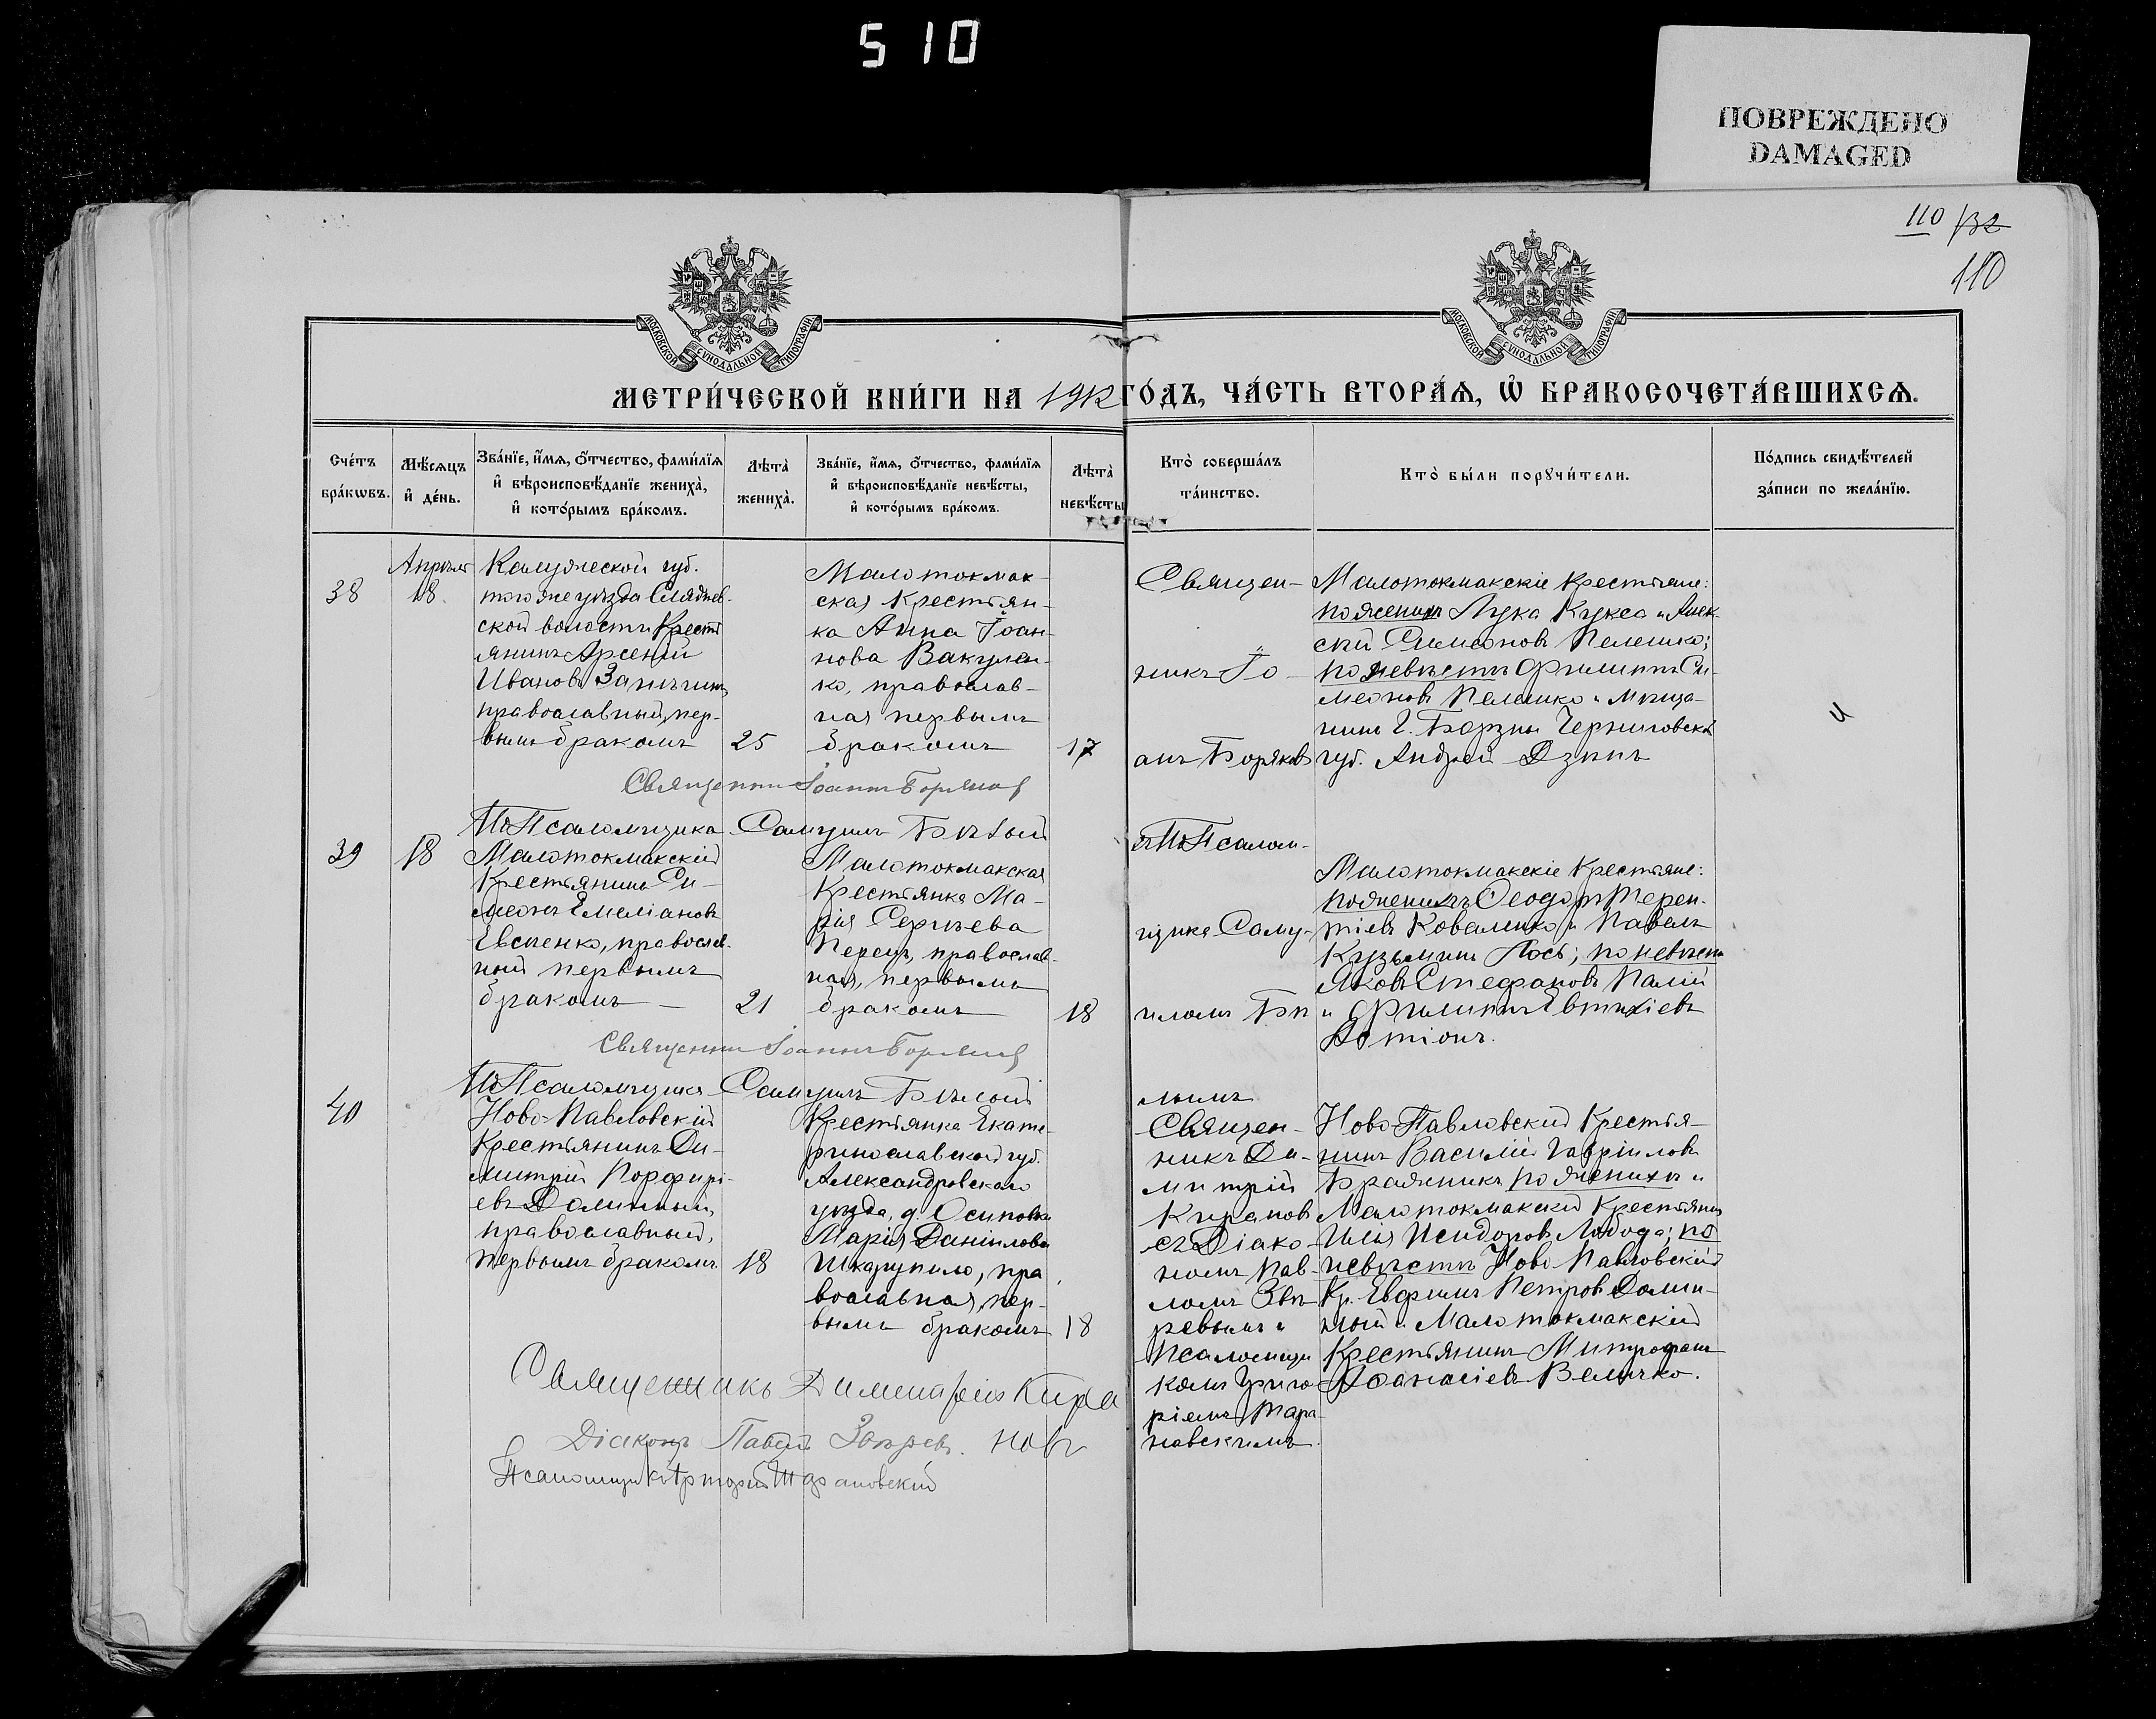 510
ПОВРЕЖДЕНО
DAMAGED
110 132
110
МОСКОВСКОЙ СѴНОДАЛЬНОЙ ТИПОГРАФІИ
МОСКОВСКОЙ СѴНОДАЛЬНОЙ ТИПОГРАФІИ
МЕТРИ́ЧЕСКОЙ КНИ́ГИ НА 1912 ГО́ДЪ, ЧА́СТЬ ВТОРА́Ѧ, Ѡ҆ БРАКОСОЧЕТА́ВШИХСѦ.
Сче́тъ бра́кѡвъ.
Мѣ́сяцъ и҆ де́нь.
Зва́нїе, и҆́мѧ, ѻ҆́тчество, фами́лїѧ
и҆ вѣроисповѣ́данїе жениха̀,
и҆ кото́рымъ бра́комъ.
Лѣта̀ жениха̀.
Зва́нїе, и҆́мѧ, ѻ҆́тчество, фами́лїѧ
и҆ вѣроисповѣ́данїе невѣ́сты,
и҆ кото́рымъ бра́комъ.
Лѣта̀ невѣ́сты
Кто̀ соверша́лъ
та́инство.
Кто̀ бы́ли порꙋчи́тели.
По́дпись свидѣ́телей
за́писи по жела́нїю.
38
Апрѣля
18.
Калужской губ.
того же уѣзда
ской волости Крестъ
янинъ Арсеній
Ивановъ
православный, пер-
вымъ бракомъ
25
Малотокмак-
ская Крестьян-
ка Анна Іоан-
нова Вакулен-
ко, православ-
ная первымъ
бракомъ
17
Священ-
никъ Іо-
анъ Боряковъ
Малотокмакскіе Крестьяне:
по женихѣ Лука Кукса и Алек-
сѣй Симеоновъ Пелешко;
по невѣстѣ Филиппъ Си-
меоновъ Пелешко и Мѣща-
нинъ г. Борзны Черниговской
губ. Андрей
Священникъ Іоаннъ Боряковъ
ИдПсаломщика Самуилъ Бѣлый
39
18
Малотокмакскій
Крестьянинъ Си-
меонъ Емеліановъ
Евсеенко, православ-
ный первымъ
бракомъ
21
Малотокмакская
Крестьянка Ма-
рія Сергѣева
Перецъ, православ-
ная, первымъ
бракомъ
18
и ИдПсалом-
щика Саму-
иломъ Бѣ
лымъ
Малотокмакскіе Крестьяне:
по женихѣ Ѳеодоръ Терен-
тіевъ Коваленко и Павелъ
Кузьминъ Лось; по невѣстѣ
Яковъ Стефановъ Палій
и Филиппъ Евтихіевъ
Священникъ Іоаннъ Боряковъ
ИдПсаломщика Самуилъ Бѣлый
40
Ново-Павловскій
Крестьянинъ Ди-
митрій Порфирі-
евъ Долинный,
православный,
первымъ бракомъ
18
Крестьянка Екате-
ринославской губ.
Александровскаго
уѣзда, д. Осиповки
Марія Даніилова
Шкарупило, пра
вославная, пер-
вымъ бракомъ
18
Священ-
никъ Ди-
митрій
Кирановъ
съ Діако-
номъ Пав-
ломъ Звѣ-
ревымъ и
Псаломщи
комъ Григо-
ріемъ Тара-
новскимъ.
Ново-Павловскій Крестья-
нинъ Василій Гавріиловъ
Бражникъ по женихѣ и
Малотокмакскій Крестьянинъ
Илія Исидоровъ Лобода; по
невѣстѣ Ново-Павловскій
Кр. Евфимъ Петровъ Долин-
ный и Малотокмакскій
Крестьянинъ Митрофанъ
Аѳанасіевъ Величко.
Священникъ Димитрій Кира
новъ
Діаконъ Павелъ Звѣревъ.
Псаломщикъ Григорій Тарановскій